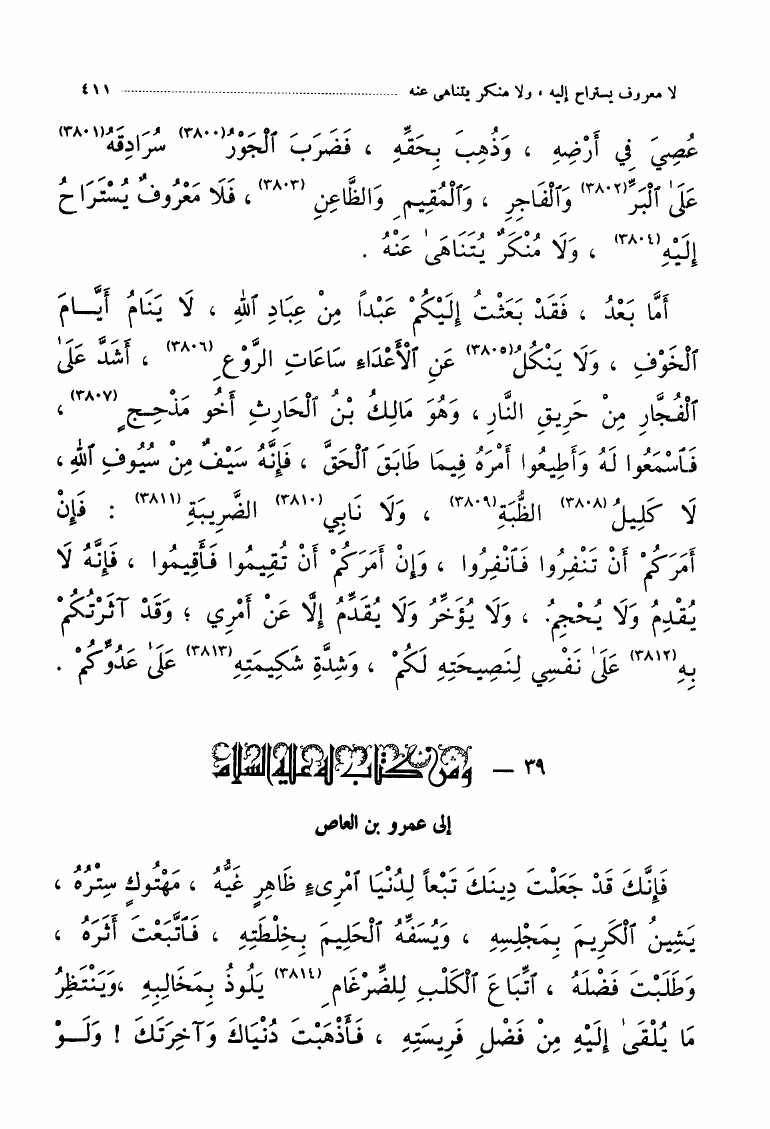 لا معروف يستراح إليه ، ولا منكر يتناهى عنه ........ ٤١١
عُصِيَ فِي أَرْضِهِ ، وَذُهِبَ بِحَقِّهِ ، فَضَرَبَ ٱلْجَوْرُ(٣٨٠٠) سُرَادِقَهُ(٣٨٠١)
عَلَىٰ ٱلْبَرِّ(٣٨٠٢) وَٱلْفَاجِرِ ، وَٱلْمُقِيمِ وَالظَّاعِنِ (٣٨٠٣) ، فَلَا مَعْرُوفٌ يُسْتَرَاحُ
إِلَيْهِ(٣٨٠٤) ، وَلَا مُنْكَرٌ يُتَنَاهَىٰ عَنْهُ .
أَمَّا بَعْدُ ، فَقَدْ بَعَثْتُ إِلَيْكُمْ عَبْداً مِنْ عِبَادِ ٱللهِ ، لَا يَنَامُ أَيَّــامَ
ٱلْخَوْفِ ، وَلَا يَنْكُلُ(٣٨٠٥) عَنِ ٱلْأَعْدَاءِ سَاعَاتِ الرَّوْعِ (٣٨٠٦) ، أَشَدَّ عَلَىٰ
ٱلْفُجَّارِ مِنْ حَرِيقِ النَّارِ ، وَهُوَ مَالِكُ بْنُ ٱلْحَارِثِ أَخُو مَذْحِــجٍ (٣٨٠٧) ،
فَٱسْمَعُوا لَهُ وَأَطِيعُوا أَمْرَهُ فِيمَا طَابَقَ ٱلْحَقَّ ، فَإِنَّهُ سَيْفٌ مِنْ سُيُوفِ ٱللهِ ،
لَا كَلِيلُ(٣٨٠٨) الظُّبَةِ(٣٨٠٩) ، وَلَا نَابِي(٣٨١٠) الضَّرِيبَةِ(٣٨١١) : فَإِنْ
أَمَرَكُمْ أَنْ تَنْفِرُوا فَٱنْفِرُوا ، وَإِنْ أَمَرَكُمْ أَنْ تُقِيمُوا فَأَقِيمُوا ، فَإِنَّهُ لَا
يُقْدِمُ وَلَا يُحْجِمُ ، وَلَا يُؤَخِّرُ وَلَا يُقَدِّمُ إِلَّا عَنْ أَمْرِي ؛ وَقَدْ آثَرْتُكُمْ
بِهِ(٣٨١٢) عَلَىٰ نَفْسِي لِنَصِيحَتِهِ لَكُمْ ، وَشِدَّةِ شَكِيمَتِهِ(٣٨١٣) عَلَىٰ عَدُوِّكُمْ .
٣٩ – ومن كتاب له عليه السلام
إلى عمرو بن العاص
فَإِنَّكَ قَدْ جَعَلْتَ دِينَكَ تَبَعاً لِدُنْيَا ٱمْرِىءٍ ظَاهِرٍ غَيُّهُ ، مَهْتُوكٍ سِتْرُهُ ،
يَشِينُ ٱلْكَرِيمَ بِمَجْلِسِهِ ، وَيُسَفِّهُ ٱلْحَلِيمَ بِخِلْطَتِهِ ، فَٱتَّبَعْتَ أَثَرَهُ ،
وَطَلَبْتَ فَضْلَهُ ، ٱتِّبَاعَ ٱلْكَلْبِ لِلضِّرْغَامِ (٣٨١٤) يَلُوذُ بِمَخَالِبِهِ ، وَيَنْتَظِرُ
مَا يُلْقَىٰ إِلَيْهِ مِنْ فَضْلِ فَرِيسَتِهِ ، فَأَذْهَبْتَ دُنْيَاكَ وَآخِرَتَكَ ! وَلَــوْ